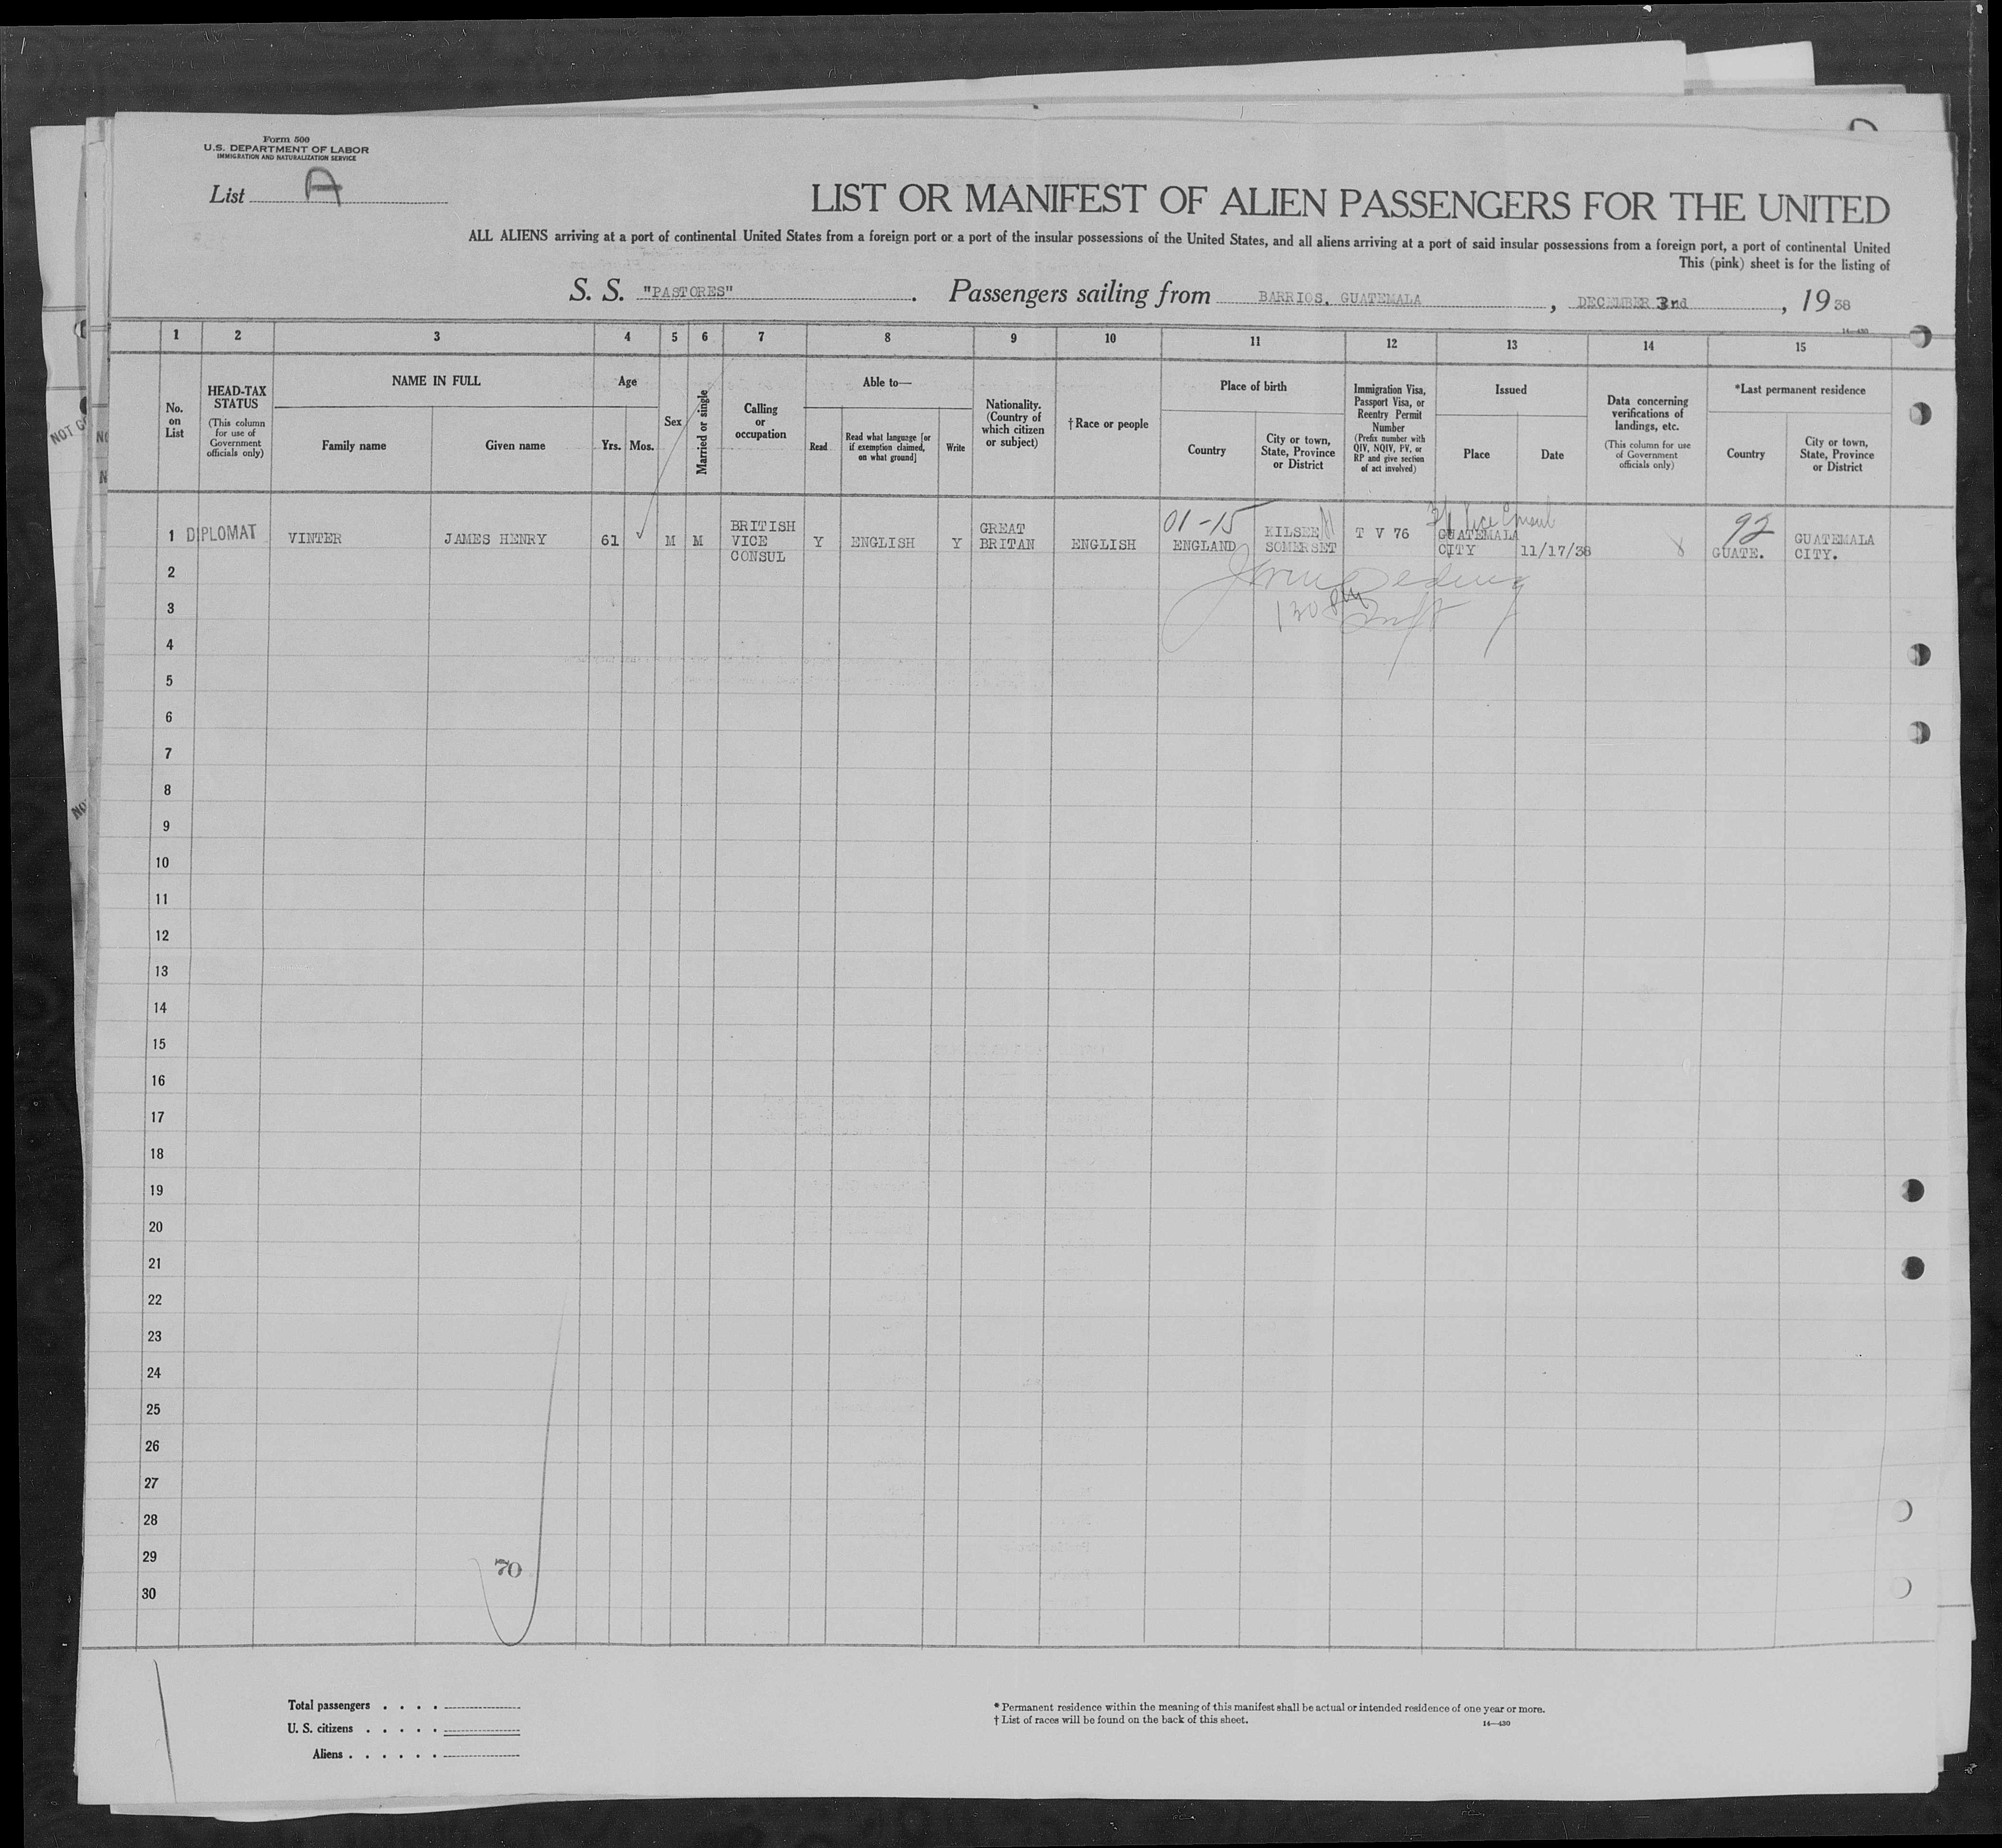 Form 500
U.S. DEPARTMENT OF LABOR
IMMIGRATION AND NATURALIZATION SERVICE
List A
LIST OR MANIFEST OF ALIEN PASSENGERS FOR THE UNITED
ALL ALIENS arriving at a port of continental United States from a foreign port or a port of the insular possessions of the United States, and all aliens arriving at a port of said insular possessions from a foreign port, a port of continental United
This (pink) sheet is for the listing of
S. S. "PASTORES". Passengers sailing from BARRIOS, GUATEMALA, DECEMBER 3rd, 1938
14—430
1 2 3 4 5 6 7 8 9 10 11 12 13 14 15
No. on List
HEAD-TAX STATUS
(This column for use of Government officials only)
NAME IN FULL
Family name
Given name
Age
Yrs.
Mos.
Sex
Married or single
Calling or occupation
Able to—
Read
Read what language [or if exemption claimed, on what ground]
Write
Nationality. (Country of which citizen or subject)
†Race or people
Place of birth
Country
City or town, State, Province or District
Immigration Visa, Passport Visa, or Reentry Permit Number
(Prefix number with QIV, NQIV, PV, or RP and give section of act involved)
Issued
Place
Date
Data concerning verifications of landings, etc.
(This column for use of Government officials only)
*Last permanent residence
Country
City or town, State, Province or District
1 DIPLOMAT VINTER JAMES HENRY 61 ✓ M M BRITISH VICE CONSUL Y ENGLISH Y GREAT BRITAN ENGLISH 01-15 ENGLAND KILSEE SOMERSET T V 76 Vice Consul GUATEMALA CITY 11/17/38 92 GUATE. GUATEMALA CITY.
2
3
4
5
6
7
8
9
10
11
12
13
14
15
16
17
18
19
20
21
22
23
24
25
26
27
28
29
30
70
Total passengers . . . .
U. S. citizens . . . . .
Aliens . . . . . .
* Permanent residence within the meaning of this manifest shall be actual or intended residence of one year or more.
† List of races will be found on the back of this sheet.
14—430